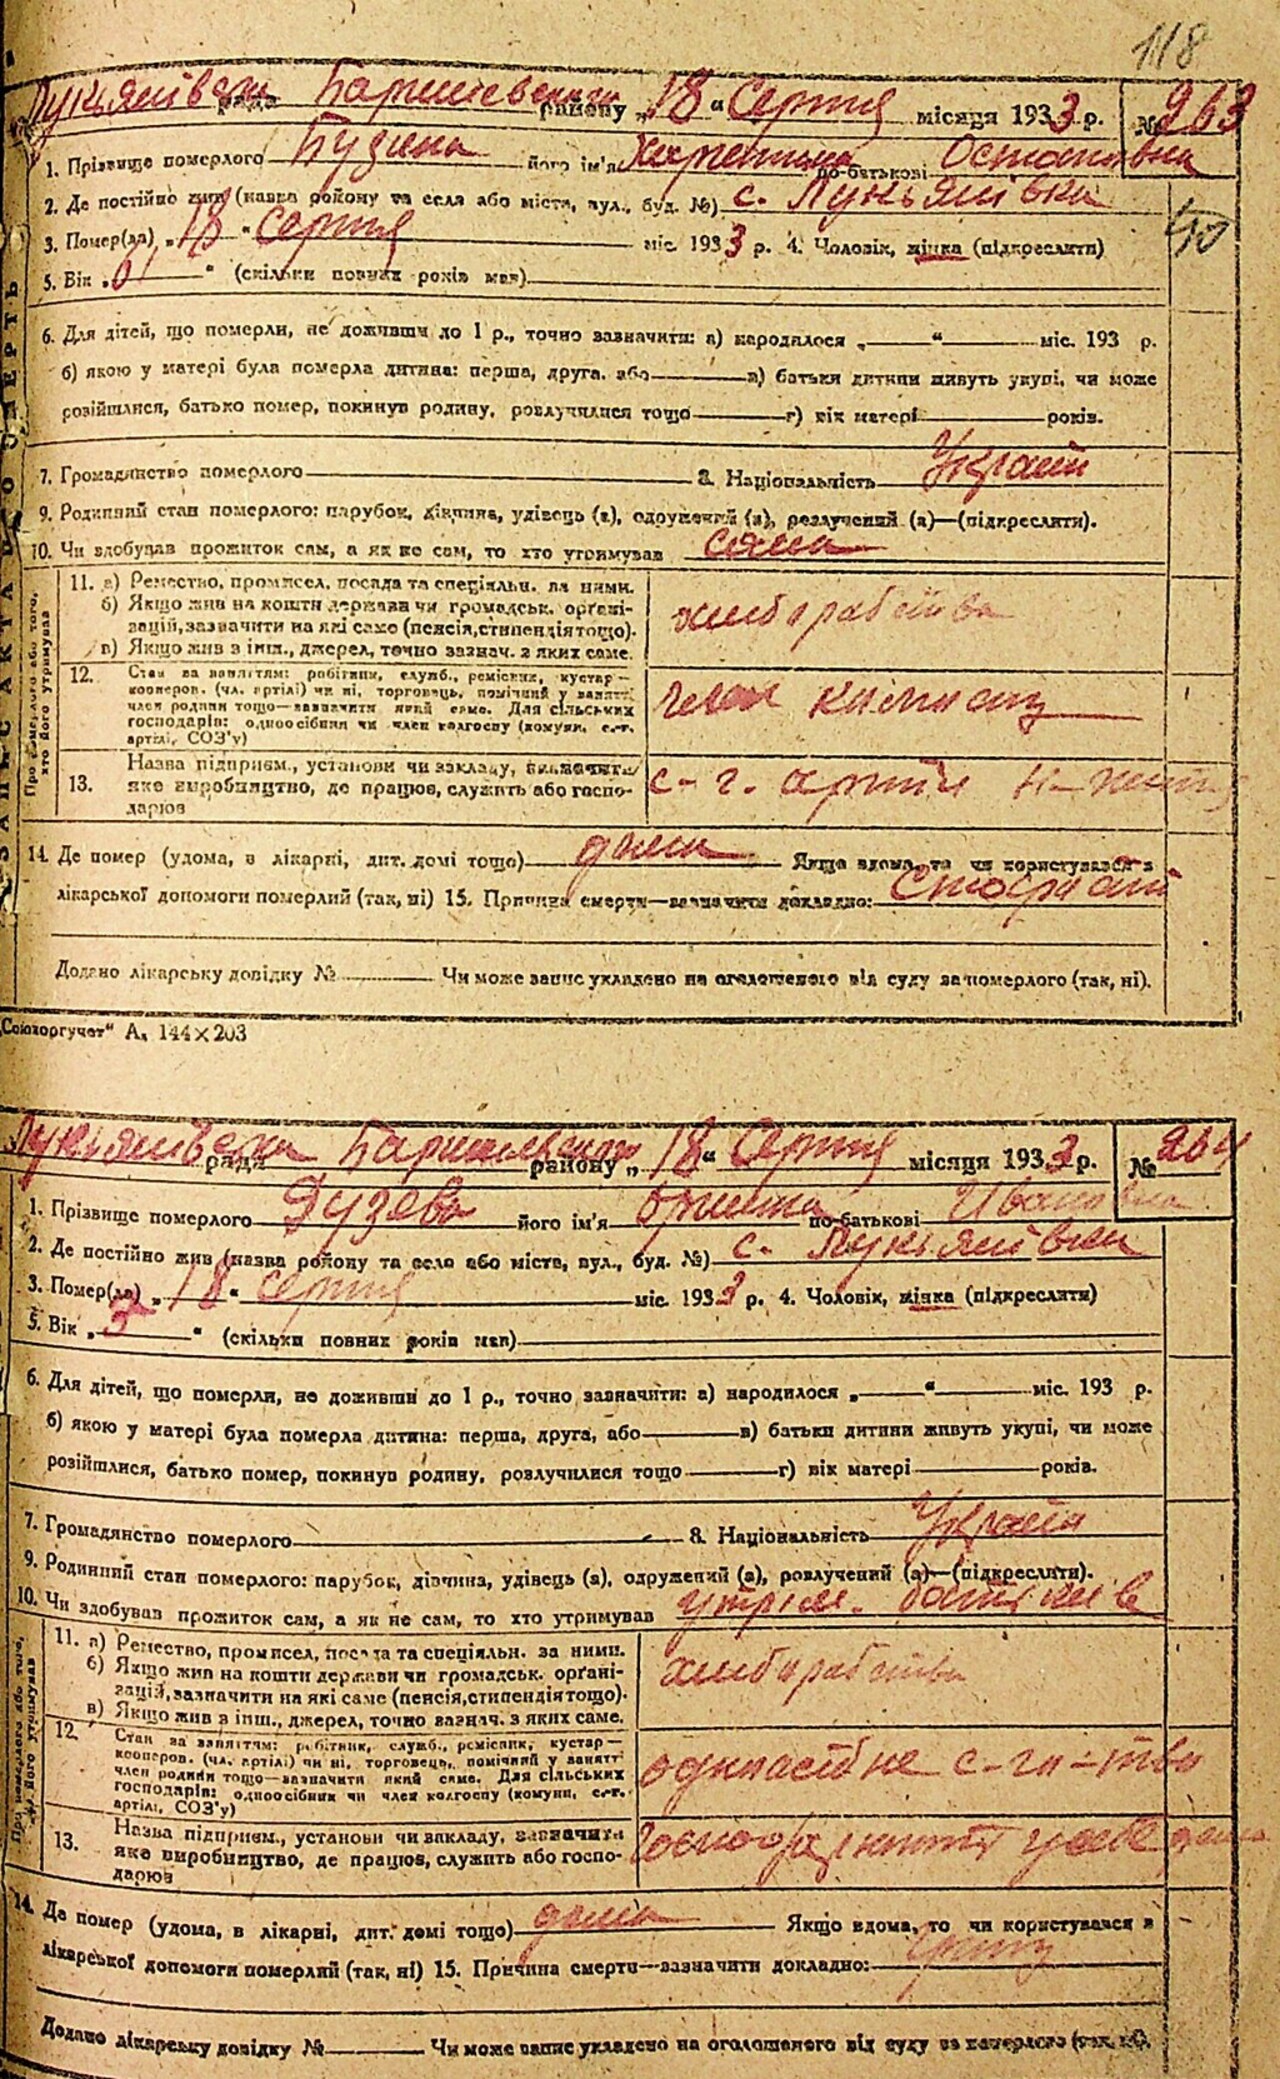 118
Лукьянівська рада Баришевського району „18“ Серпня місяця 1933 р. № 263
1. Прізвище померлого його ім'я по-батькові Остапівна
2. Де постійно жив (назва району та села або міста, вул., буд. №) с. Лукьянівка
3. Помер(ла) „18“ серпня міс. 1933 р. 4. Чоловік, жінка (підкреслити)
40
5. Вік „ “ (скільки повних років мав)
6. Для дітей, що померли, не доживши до 1 р., точно зазначити: а) народилося „ “ міс. 193 р.
б) якою у матері була померла дитина: перша, друга, або в) батьки дитини живуть укупі, чи може
розійшлися, батько помер, покинув родину, розлучилися тощо г) вік матері років.
7. Громадянство померлого 8. Національність Україн
9. Родинний стан померлого: парубок, дівчина, удівець (а), одружений (а), розлучений (а)—(підкреслити).
10. Чи здобував прожиток сам, а як не сам, то хто утримував сама
Про померлого або того, хто його утримував
11. а) Ремество, промисел, посада та спеціяльн. за ними.
б) Якщо жив на кошти держави чи громадськ. орґані-
зацій, зазначити на які саме (пенсія, стипендія тощо).
в) Якщо жив з інш., джерел, точно зазнач. з яких саме.
хліборобство
12. Стан за заняттям: робітник, служб., ремісник, кустар—
кооперов. (чл. артілі) чи ні, торговець, помічний у занятті
член родини тощо—зазначити який саме. Для сільських
господарів: одноосібник чи член колгоспу (комуни, с.-г.
артілі, СОЗ'у)
член колгоспу
13. Назва підприєм., установи чи закладу, зазначити
яке виробництво, де працює, служить або госпо-
дарює
с-г. артіл
14. Де помер (удома, в лікарні, дит. домі тощо) дома Якщо вдома, то чи користувався з
лікарської допомоги померлий (так, ні) 15. Причина смерти—зазначити докладно:
Додано лікарську довідку № Чи може запис укладено на оголошеного від суду за померлого (так, ні).
ЗАПИС АКТА ПРО СМЕРТЬ
„Союзоргучет“ А. 144×203
Лукьянівська рада Баришевського району „18“ Серпня місяця 1933 р. № 264
1. Прізвище померлого його ім'я по-батькові Ивановна
2. Де постійно жив (назва району та села або міста, вул., буд. №) с. Лукьянівка
3. Помер(ла) „18“ серпня міс. 1933 р. 4. Чоловік, жінка (підкреслити)
5. Вік „5“ (скільки повних років мав)
6. Для дітей, що померли, не доживши до 1 р., точно зазначити: а) народилося „ “ міс. 193 р.
б) якою у матері була померла дитина: перша, друга, або в) батьки дитини живуть укупі, чи може
розійшлися, батько помер, покинув родину, розлучилися тощо г) вік матері років.
7. Громадянство померлого 8. Національність Україн
9. Родинний стан померлого: парубок, дівчина, удівець (а), одружений (а), розлучений (а)—(підкреслити).
10. Чи здобував прожиток сам, а як не сам, то хто утримував утрим. батьків
11. а) Ремество, промисел, посада та спеціяльн. за ними.
б) Якщо жив на кошти держави чи громадськ. орґані-
зацій, зазначити на які саме (пенсія, стипендія тощо).
в) Якщо жив з інш., джерел, точно зазнач. з яких саме.
хліборобство
12. Стан за заняттям: робітник, служб., ремісник, кустар—
кооперов. (чл. артілі) чи ні, торговець, помічний у занятті
член родини тощо—зазначити який саме. Для сільських
господарів: одноосібник чи член колгоспу (комуни, с.-г.
артілі, СОЗ'у)
одноосібне с-го-тво
13. Назва підприєм., установи чи закладу, зазначити
яке виробництво, де працює, служить або госпо-
дарює
у себе дома
14. Де помер (удома, в лікарні, дит. домі тощо) дома Якщо вдома, то чи користувався з
лікарської допомоги померлий (так, ні) 15. Причина смерти—зазначити докладно:
Додано лікарську довідку № Чи може запис укладено на оголошеного від суду за померлого (так, ні).